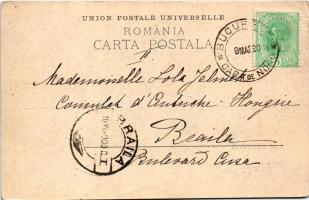 UNION POSTALE UNIVERSELLE
ROMÂNIA
CARTA POSTALA
BUCUR
9MAI 00
GARA DE NORD
Mademoiselle Lola
Consulat d'Autriche-Hongrie
Braila
Bulevard Cuza
BRAILA